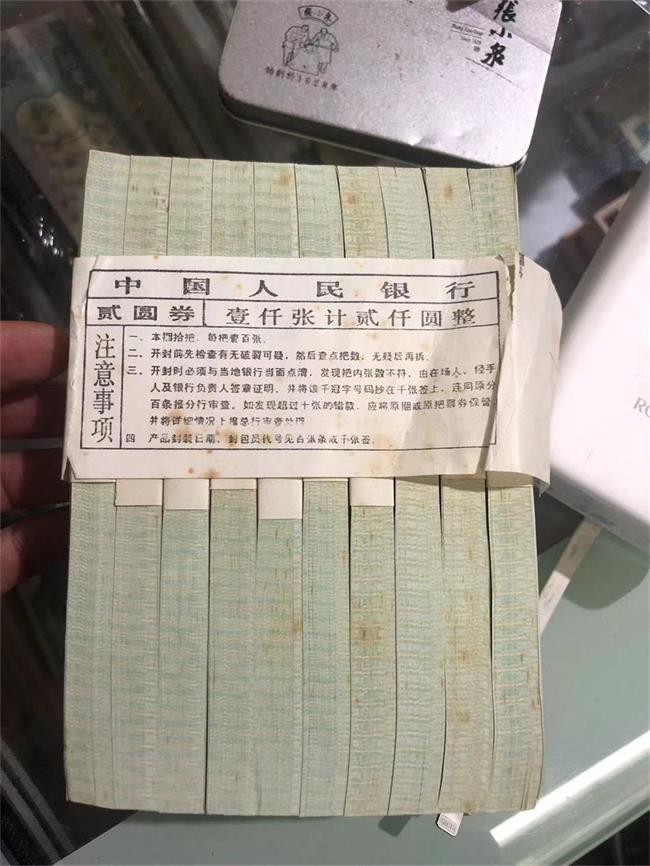 張小泉
張小泉
始創於1628年
中国人民银行
贰圆券 壹仟张计贰仟圆整
注意事项
一、本捆拾把，每把壹百张。
二、开封前先检查有无破裂可疑，然后查点把数，无疑后再拆。
三、开封时必须与当地银行当面点清，发现把内张数不符，由在场人、经手
人及银行负责人签章证明，并将该千冠字号码抄在千张签上，连同原分
百条报分行审查。如发现超过十张的错款，应将原捆或原把票券保管，
并将详细情况上报总行审查处理。
四 产品封装日期、封包员代号见百张条或千张签。
RO